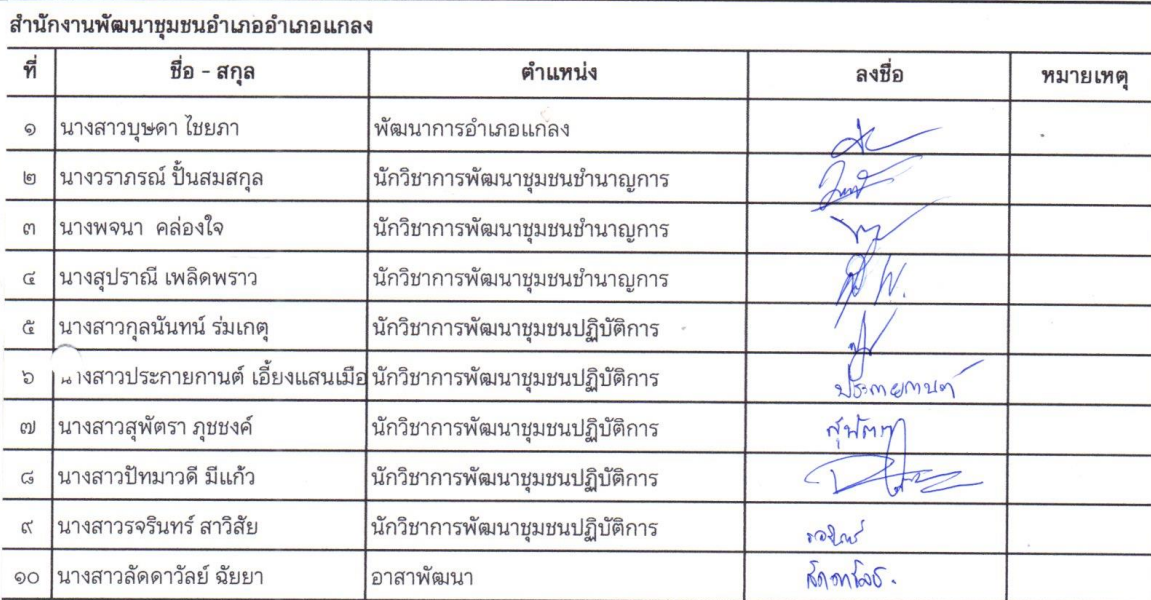 สำนักงานพัฒนาชุมชนอำเภออำเภอแกลง
ที่ ชื่อ - สกุล ตำแหน่ง ลงชื่อ หมายเหตุ
๑ นางสาวบุษดา ไชยภา พัฒนาการอำเภอแกลง
๒ นางวราภรณ์ ปั้นสมสกุล นักวิชาการพัฒนาชุมชนชำนาญการ
๓ นางพจนา คล่องใจ นักวิชาการพัฒนาชุมชนชำนาญการ
๔ นางสุปราณี เพลิดพราว นักวิชาการพัฒนาชุมชนชำนาญการ
๕ นางสาวกุลนันทน์ ร่มเกตุ นักวิชาการพัฒนาชุมชนปฏิบัติการ
๖ นางสาวประกายกานต์ เอี้ยงแสนเมือ นักวิชาการพัฒนาชุมชนปฏิบัติการ ประกายกานต์
๗ นางสาวสุพัตรา ภุชชงค์ นักวิชาการพัฒนาชุมชนปฏิบัติการ สุพัตรา
๘ นางสาวปัทมาวดี มีแก้ว นักวิชาการพัฒนาชุมชนปฏิบัติการ
๙ นางสาวรจรินทร์ สาวิสัย นักวิชาการพัฒนาชุมชนปฏิบัติการ
๑๐ นางสาวลัดดาวัลย์ ฉัยยา อาสาพัฒนา